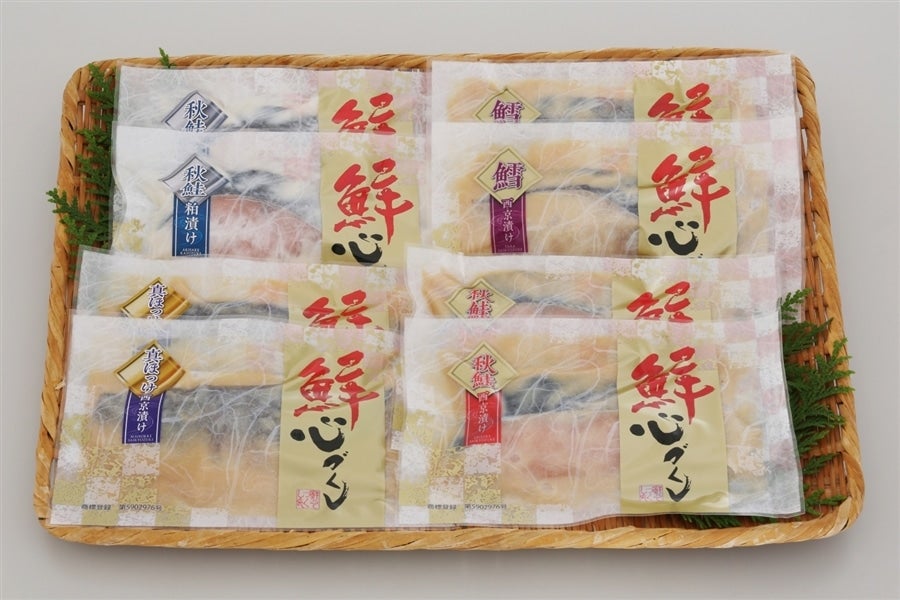 秋鮭
鮮
鱈
鮮
秋鮭
粕漬け
AKISAKE
KASUZUKE
鮮
心
鱈
西京漬け
TARA
SAIKYOZUKE
鮮
心
真ほっけ
鮮
秋鮭
鮮
真ほっけ
西京漬け
MAHOKKE
SAIKYOZUKE
鮮
心づくし
商標登録 第5902976号
秋鮭
西京漬け
AKISAKE
SAIKYOZUKE
鮮
心づくし
商標登録 第5902976号